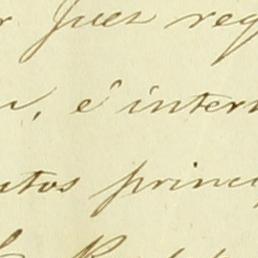 r Juez req
, é intern
utos princi